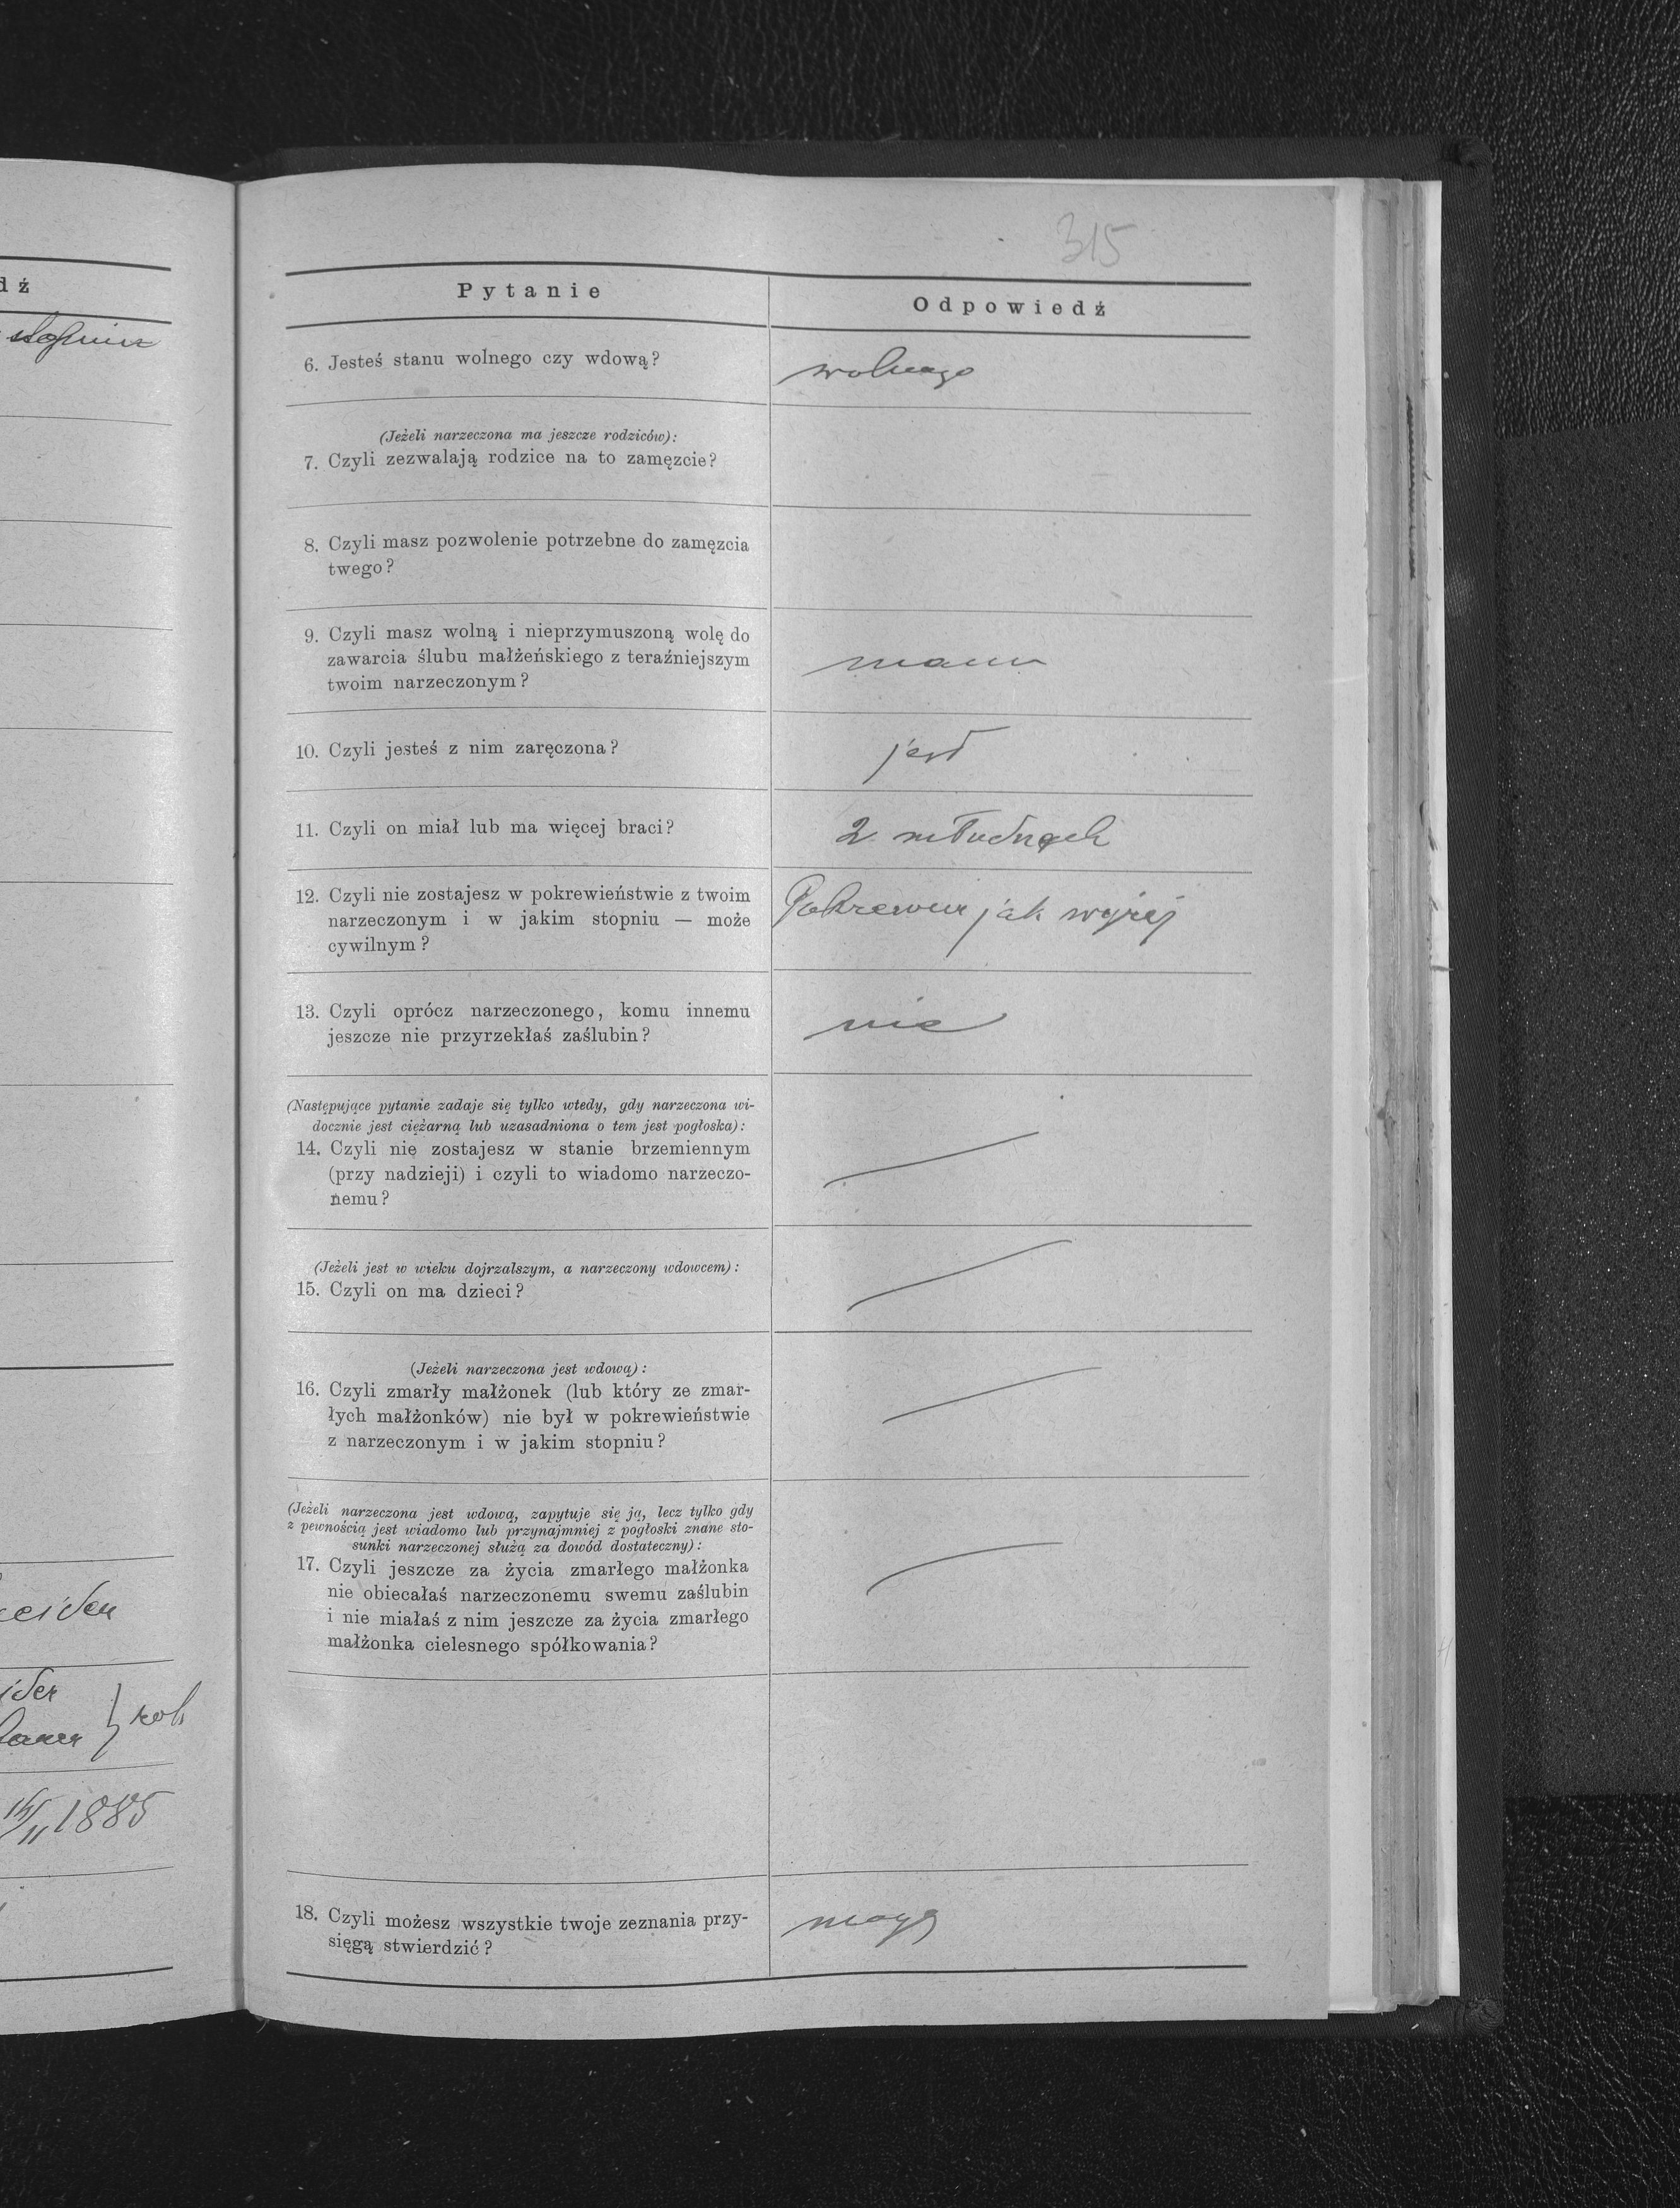 dź
stopniu
eider
ider
rob
14/11 1885
315
Pytanie
Odpowiedź
6. Jesteś stanu wolnego czy wdową?
wolnego
(Jeżeli narzeczona ma jeszcze rodziców):
7. Czyli zezwalają rodzice na to zamęzcie?
8. Czyli masz pozwolenie potrzebne do zamęzcia
twego?
9. Czyli masz wolną i nieprzymuszoną wolę do
zawarcia ślubu małżeńskiego z teraźniejszym
twoim narzeczonym?
mam
10. Czyli jesteś z nim zaręczona?
jest
11. Czyli on miał lub ma więcej braci?
2 młodszych
12. Czyli nie zostajesz w pokrewieństwie z twoim
narzeczonym i w jakim stopniu — może
cywilnym?
jak wyżej
13. Czyli oprócz narzeczonego, komu innemu
jeszcze nie przyrzekłaś zaślubin?
nie
(Następujące pytanie zadaje się tylko wtedy, gdy narzeczona wi-
docznie jest ciężarną lub uzasadniona o tem jest pogłoska):
14. Czyli nie zostajesz w stanie brzemiennym
(przy nadzieji) i czyli to wiadomo narzeczo-
nemu?
(Jeżeli jest w wieku dojrzalszym, a narzeczony wdowcem):
15. Czyli on ma dzieci?
(Jeżeli narzeczona jest wdową):
16. Czyli zmarły małżonek (lub który ze zmar-
łych małżonków) nie był w pokrewieństwie
z narzeczonym i w jakim stopniu?
(Jeżeli narzeczona jest wdową, zapytuje się ją, lecz tylko gdy
z pewnością jest wiadomo lub przynajmniej z pogłoski znane sto-
sunki narzeczonej służą za dowód dostateczny):
17. Czyli jeszcze za życia zmarłego małżonka
nie obiecałaś narzeczonemu swemu zaślubin
i nie miałaś z nim jeszcze za życia zmarłego
małżonka cielesnego spółkowania?
18. Czyli możesz wszystkie twoje zeznania przy-
sięgą stwierdzić?
mogę